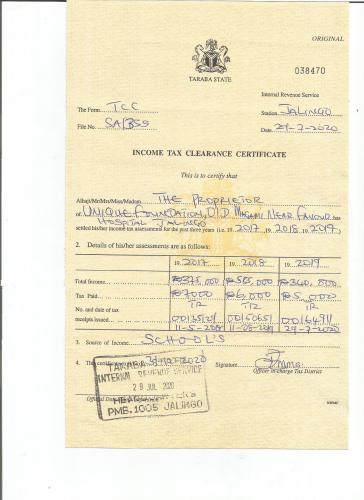 ORIGINAL
TARABA STATE
038470
Internal Revenue Service
The Form. TCC
Station JALINGO
File No. SA/BS9
Date 29-7-2020
INCOME TAX CLEARANCE CERTIFICATE
This is to certify that
Alhaji/Mr/Mrs/Miss/Madam THE PROPRIETOR
of UNIQUE FOUNDATION, OLD MAGAMI NEAR FAVOUR
HOSPITAL JALINGO
has settled his/her income tax assessment for the past three years (i.e. 19 2017, 19 2018 19 2019,
2. Details of his/her assessments are as follows:
19 2017 19 2018 19 2019
Total Income ₦375,000 ₦ 000 ₦340,800
Tax Paid ₦7000 ₦6,000 ₦5,000
No. and date of tax TR TR TR
receipts issued
29-7-2020
3. Source of Income: SCHOOL'S
4. 2020
Signature
Officer in charge Tax District
TARABA STATE
INTERNAL REVENUE SERVICE
29 JUL 2020
HEADQUARTERS
PMB.1005 JALINGO